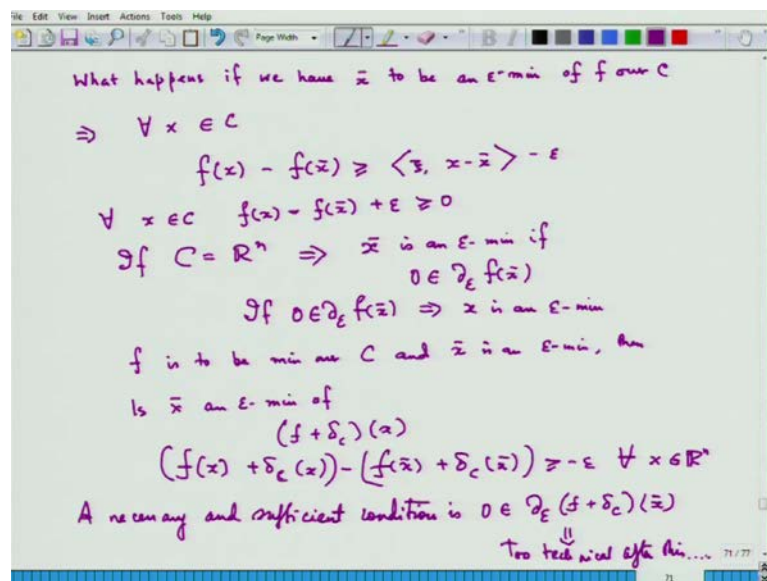 File Edit View Insert Actions Tools Help
Page Width
B I
What happens if we have x̄ to be an ε-min of f over C
⇒ ∀ x ∈ C
f(x) - f(x̄) ≥ ⟨ξ, x - x̄⟩ - ε
∀ x ∈ C f(x) - f(x̄) + ε ≥ 0
If C = ℝⁿ ⇒ x̄ is an ε-min if
0 ∈ ∂_ε f(x̄)
If 0 ∈ ∂_ε f(x̄) ⇒ x is an ε-min
f is to be min over C and x̄ is an ε-min, then
Is x̄ an ε-min of
(f + δ_c)(x)
(f(x) + δ_c(x)) - (f(x̄) + δ_c(x̄)) ≥ -ε ∀ x ∈ ℝⁿ
A necessary and sufficient condition is 0 ∈ ∂_ε (f + δ_c)(x̄)
⇓
Too technical after this....
71 / 77
71